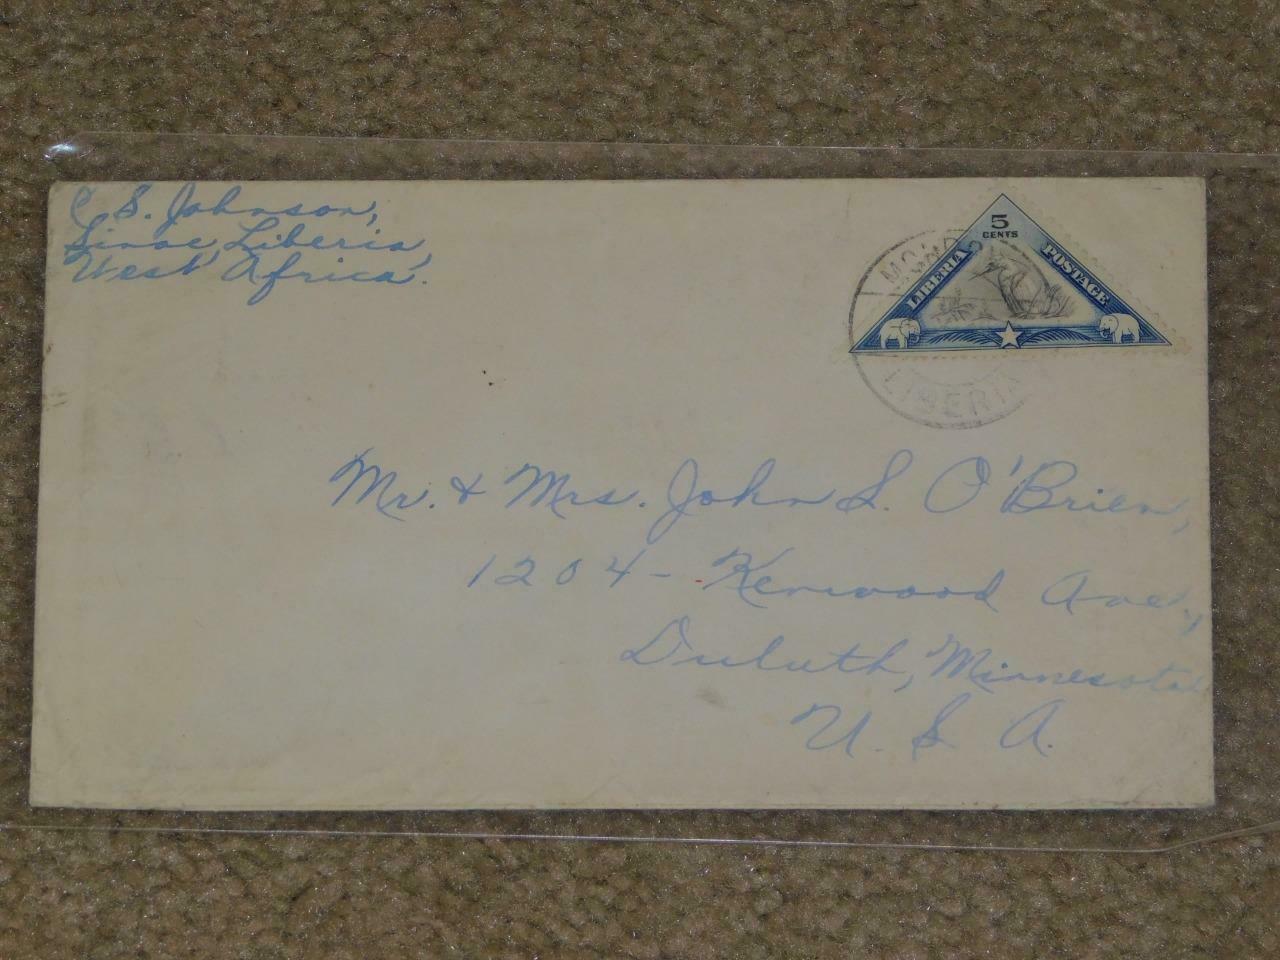 C. S. Johnson,
Sinoe, Liberia,
West Africa.
5
CENTS
LIBERIA
POSTAGE
LIBERIA
Mr. & Mrs. John S. O'Brien,
1204 - Kenwood Ave.,
Duluth, Minnesota
U. S. A.